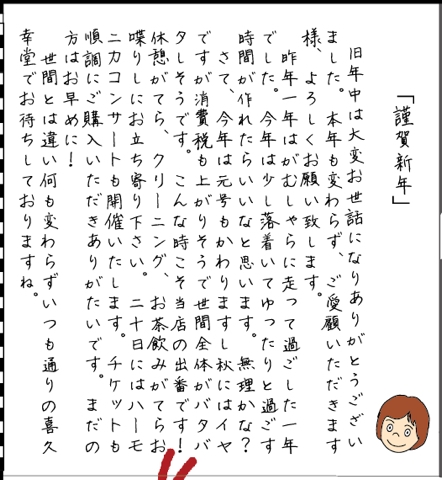 「謹賀新年」
旧年中は大変お世話になりありがとうござい
ました。本年も変わらず、ご愛顧いただきます
様、よろしくお願い致します。
昨年一年はがむしゃらに走って過ごした一年
でした。今年は少し落着いてゆったりと過ごす
時間が作れたらいいなと思います。無理かな?
さて、今年は元号もかわりますし秋にはイヤ
ですが消費税も上がりそうで世間全体がバタバ
タしそうです。こんな時こそ当店の出番です!
休憩がてら、クリーニング、お茶飲みがてらお
喋りしにお立ち寄り下さい。二十日にはハーモ
ニカコンサートも開催いたします。チケットも
順調にご購入いただきありがたいです。まだの
方はお早めに!
世間とは違い何も変わらずいつも通りの喜久
幸堂でお待ちしておりますね。